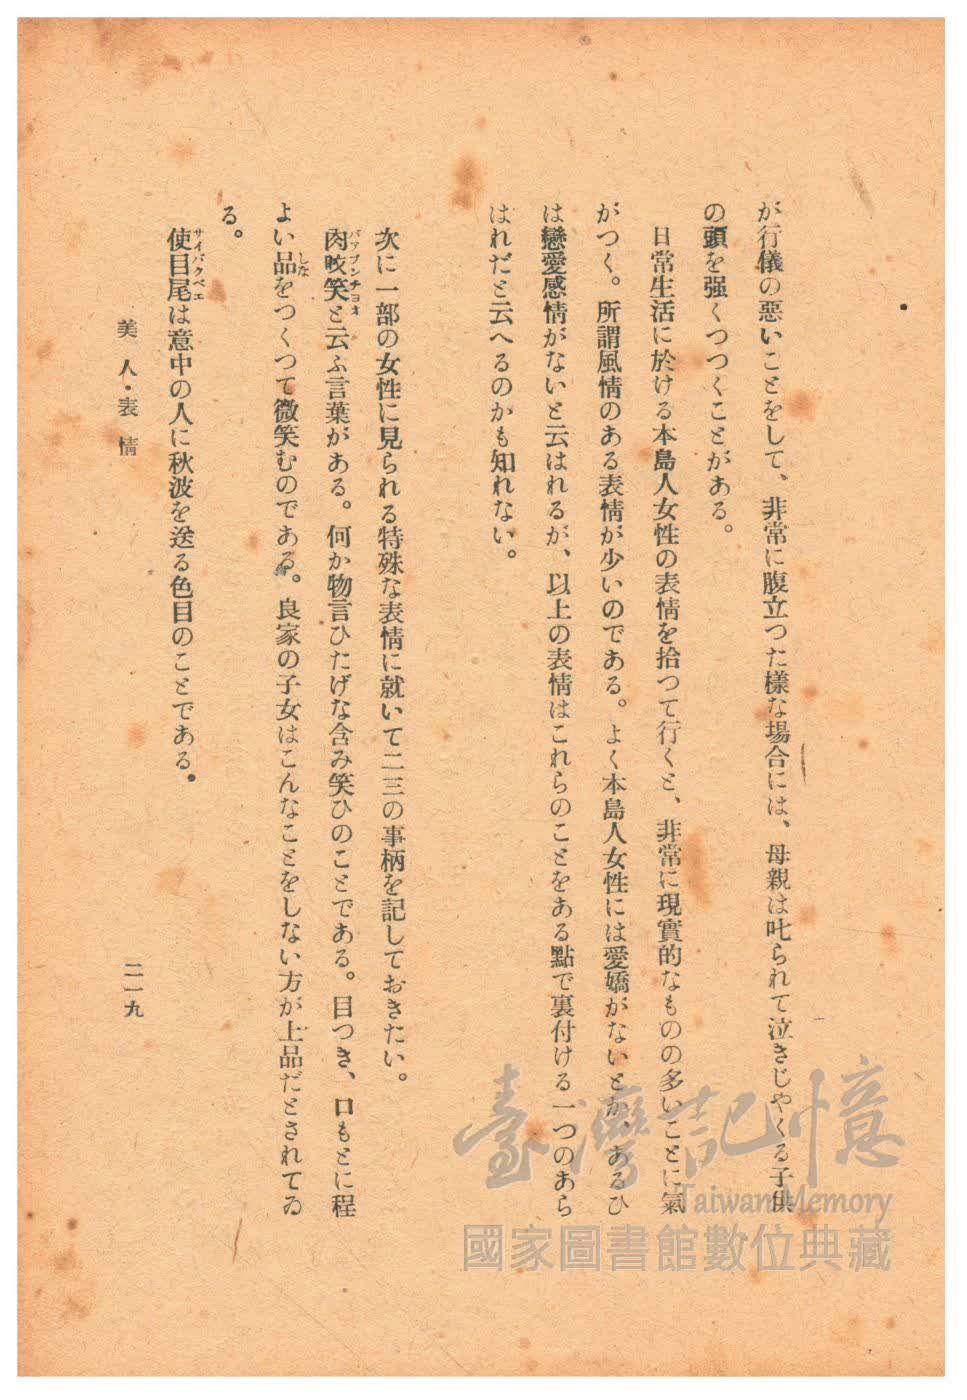 が行儀の惡いことをして、非常に腹立つた樣な場合には、母親は叱られて泣きじやくる子供
の頭を强くつつくことがある。
日常生活に於ける本島人女性の表情を拾つて行くと、非常に現實的なものの多いことに氣
がつく。所謂風情のある表情が少いのである。よく本島人女性には愛嬌がないとか、あるひ
は戀愛感情がないと云はれるが、以上の表情はこれらのことをある點で裏付ける一つのあら
はれだと云へるのかも知れない。
次に一部の女性に見られる特殊な表情に就いて二三の事柄を記しておきたい。
肉吻笑と云ふ言葉がある。何か物言ひたげな含み笑ひのことである。目つき、口もとに程
よい品をつくつて微笑むのである。良家の子女はこんなことをしない方が上品だとされてゐ
る。
使目尾は意中の人に秋波を送る色目のことである。
サイバクベエ
しな
美人・表情
二一九
臺灣記憶
Taiwan Memory
國家圖書館數位典藏